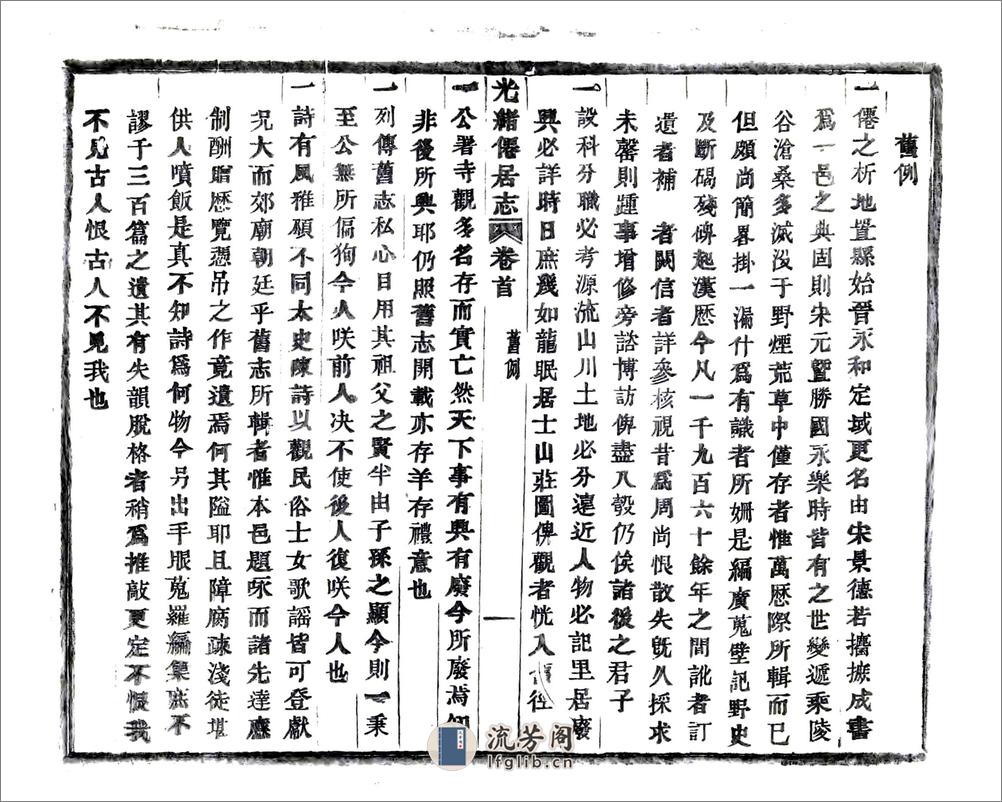 舊例
一僊之析地置縣始晉永和定域更名由宋景德若攟摭成書
爲一邑之典固則宋元曁勝國永樂時皆有之世變遞乘陵
谷滄桑多滅没于野煙荒草中僅存者惟萬歷際所輯而已
但頗尚簡畧掛一漏什爲有識者所姍是編廣蒐壁記野史
及斷碣殘碑起漢歷今凡一千九百六十餘年之間訛者訂
遺者補 者闕信者詳參核視昔爲周尚恨散失旣久採求
未罄則踵事增修旁諮博訪俾盡入彀仍俟諸後之君子
一設科分職必考源流山川土地必分遠近人物必記里居廢
興必詳時日庶幾如龍眠居士山莊圖俾觀者恍入 徑
光緖僊居志 卷首 舊例 一
一公署寺觀多名存而實亡然天下事有興有廢今所廢焉知
非後所興耶仍照舊志開載亦存羊存禮意也
一列傳舊志私心目用其祖父之賢半由子孫之顯今則一秉
至公無所偏狥今人咲前人决不使後人復咲今人也
一詩有風雅頌不同太史陳詩以觀民俗士女歌謡皆可登獻
况大而郊廟朝廷乎舊志所輯者惟本邑題咏而諸先達應
制酬贈歷覽憑吊之作竟遺焉何其隘耶且障腐疎淺徒堪
供人噴飯是真不知詩爲何物今另出手眼蒐羅編集無不
謬于三百篇之遺其有失韻脫格者稍爲推敲更定不恨我
不見古人恨古人不見我也
流芳阁
lfglib.cn